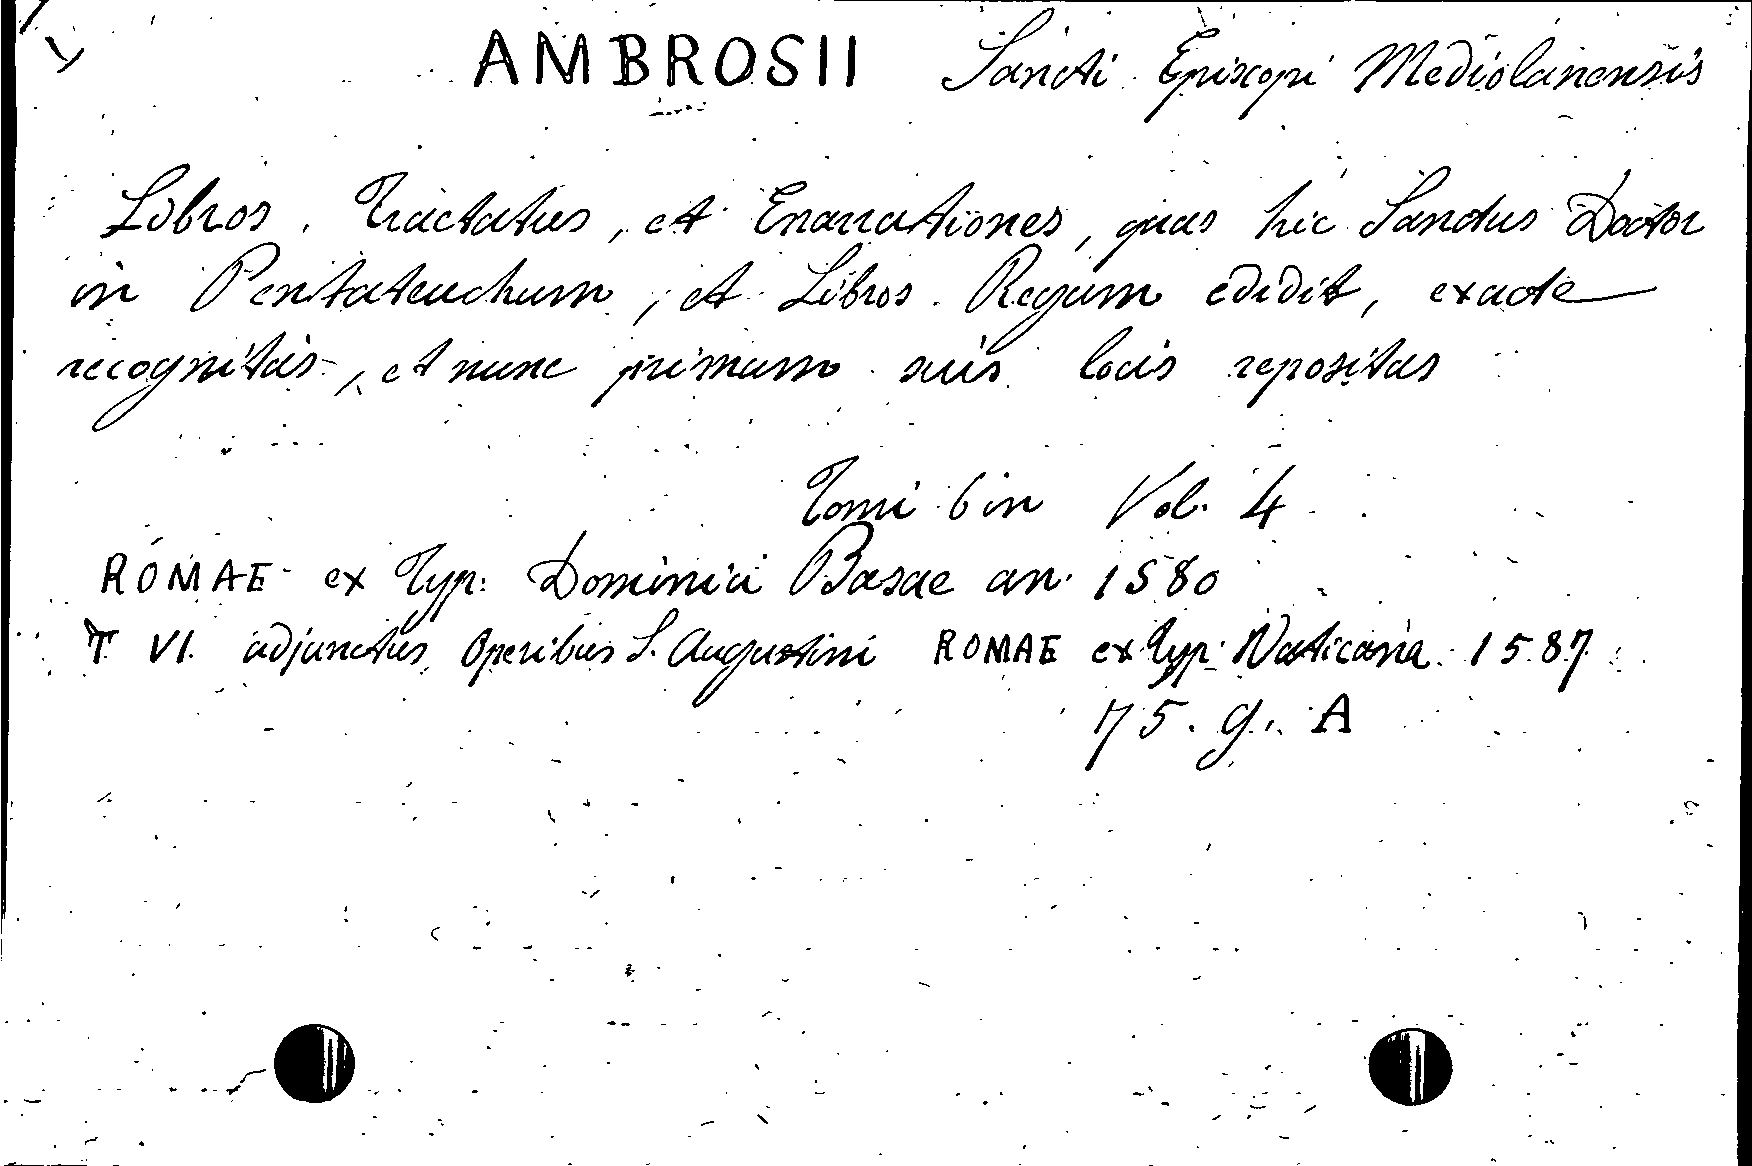 AMBROSII Sancti Episcopi Mediolanensis
Libros, Tractatus, et Enarrationes, quas hic Sanctus Doctor
in Pentateuchum, et Libros Regum edidit, exacte
recognitas, et nunc primum suis locis repositas
Tomi 6 in Vol. 4
ROMAE ex Typ: Dominici Basae an. 1580
T. VI. adjunctus Operibus S. Augustini ROMAE ex Typ. Vaticana 1587
75. g. A